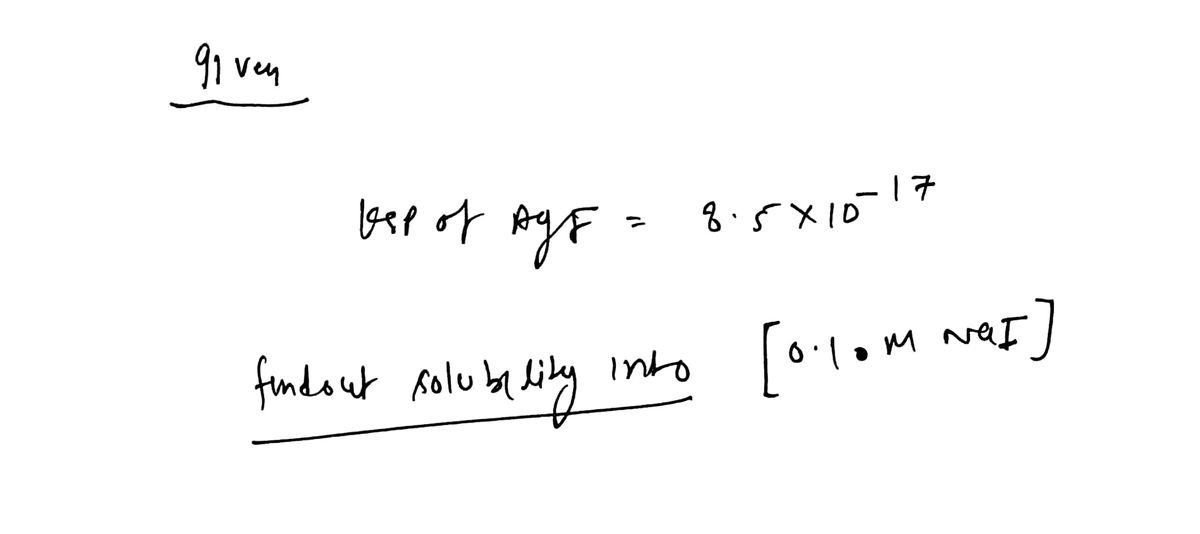 given
ksp of AgI = 8.5 × 10⁻¹⁷
findout solubility into [0.10 M NaI]